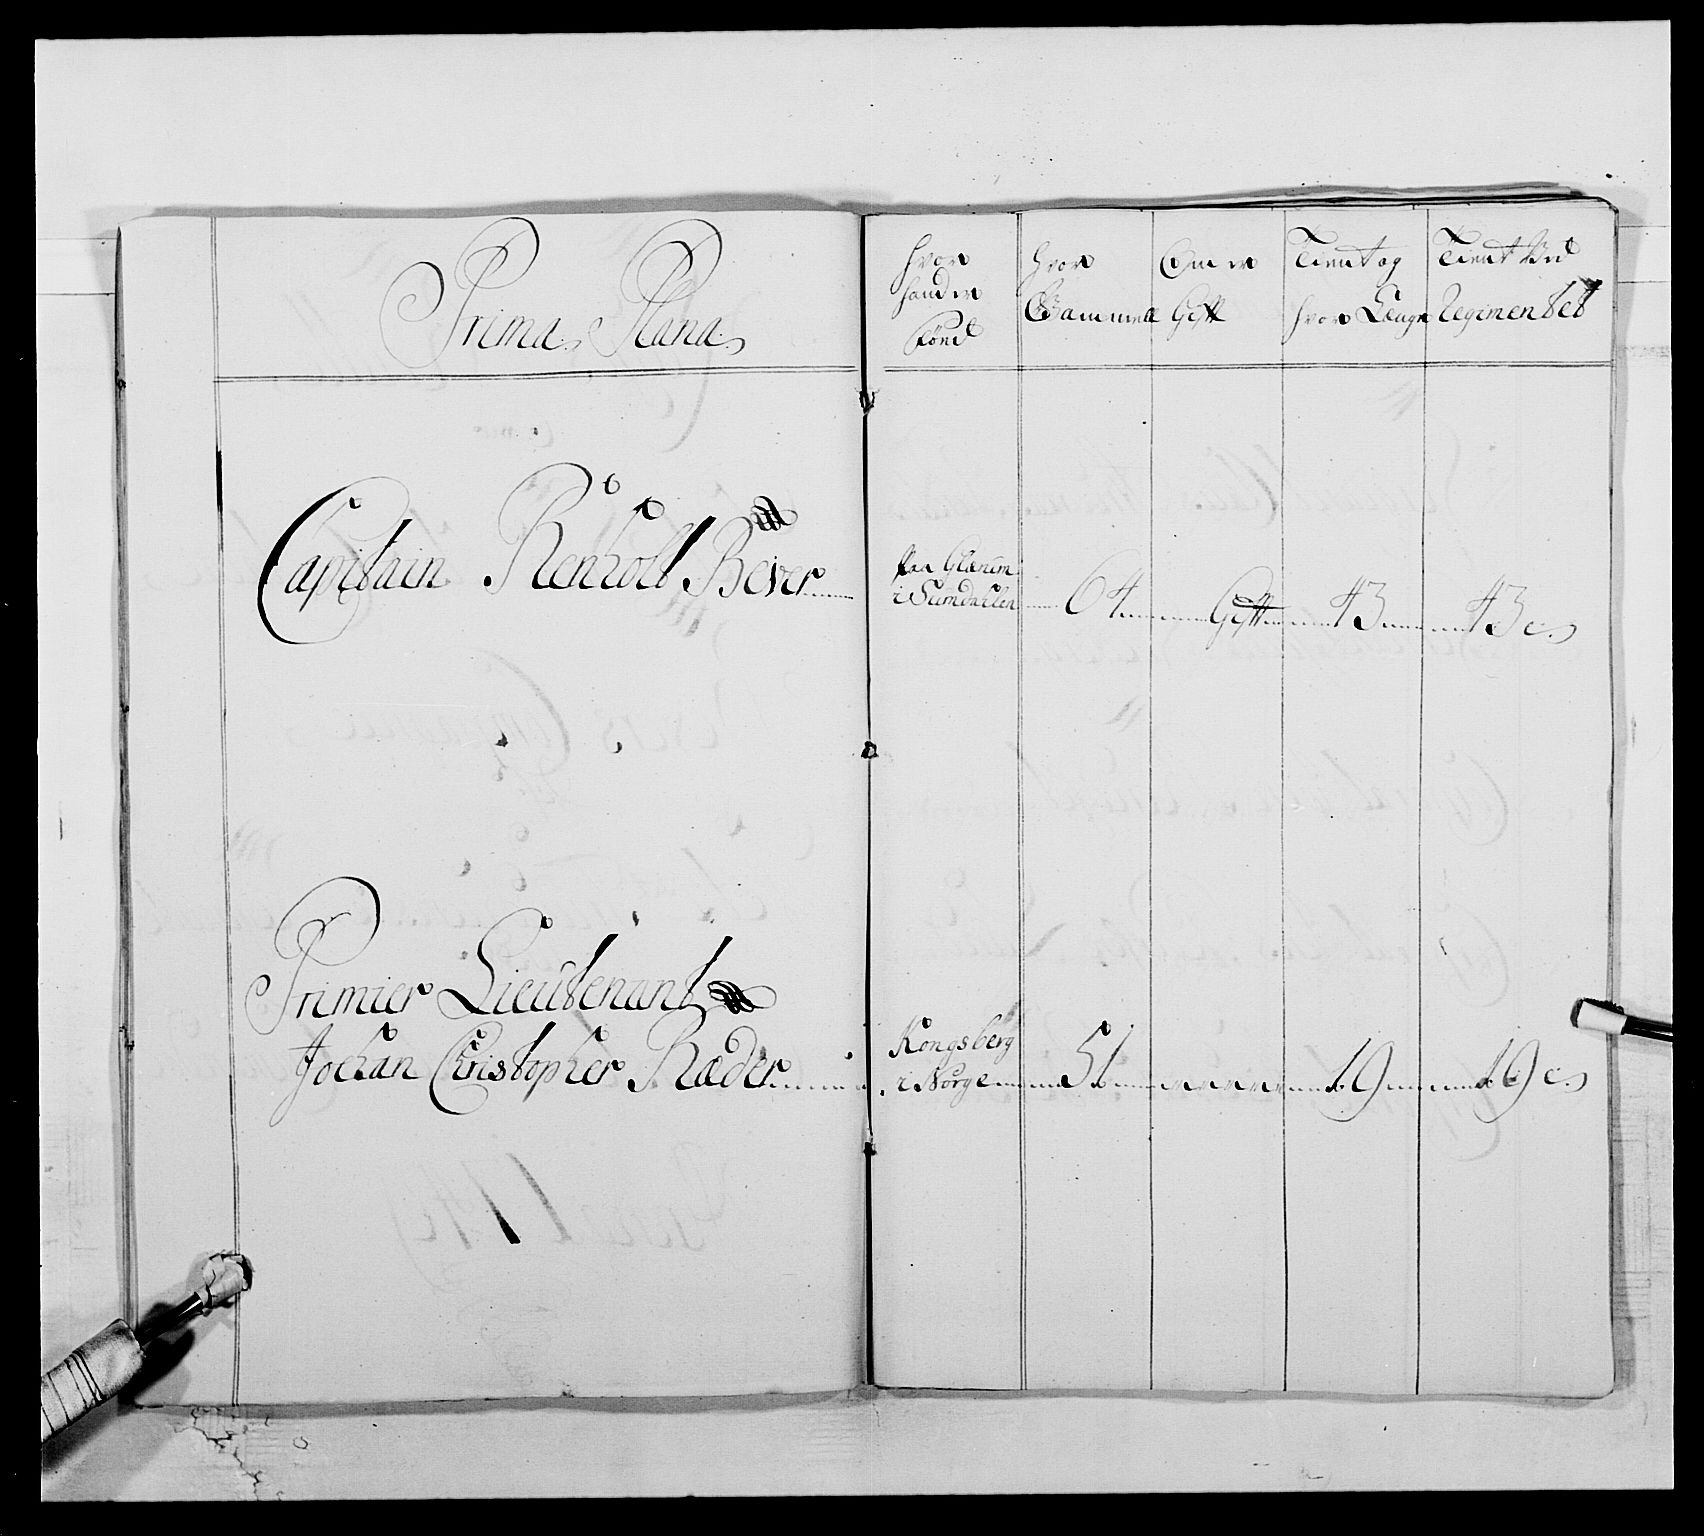 Prima Plana
hvor
hand er
föed
hvor
Gammell
Om er
Gift
Tient og
hvor Længe
Tient Ved
Regimentet
Capitain Renholt Bever
paa Glærum
i Surndahlen
64
Gift
43
43
Primier Lieutenant
Johan Christopher Ræder
Kongsberg
i Norge
51
19
19